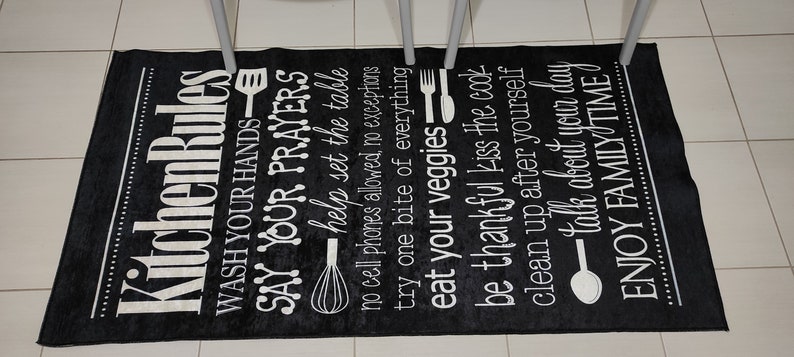 KitchenRules
WASH YOUR HANDS
SAY YOUR PRAYERS
help set the table
no cell phones allowed, no exceptions
try one bite of everything
eat your veggies
be thankful kiss the cook
clean up after yourself
talk about your day
ENJOY FAMILY TIME